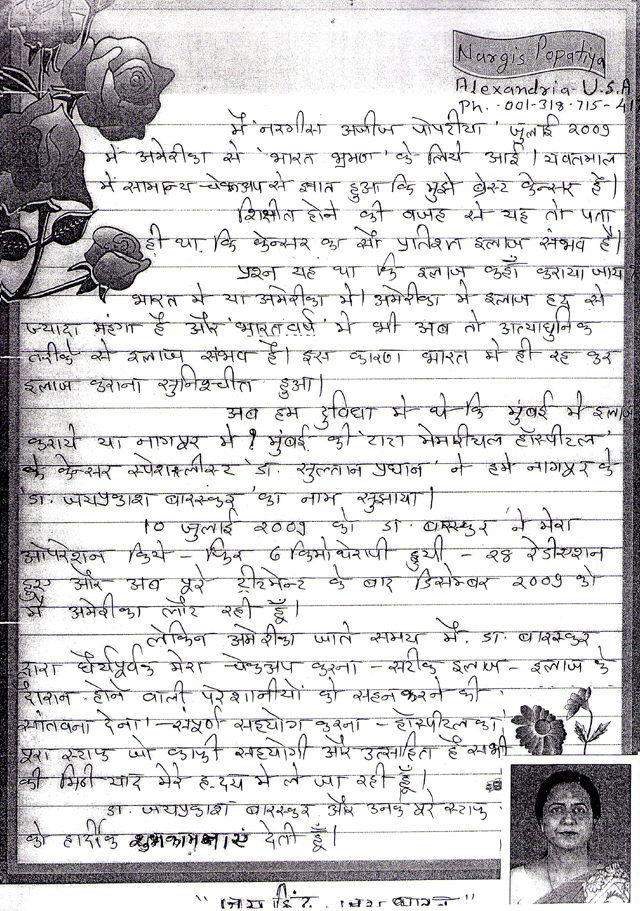 Nargis Popatiya
Alexandria U.S.A
Ph. - 001-318-715-4
मैं 'नरगीस अजीज पोपटीया' जुलाई २००९
में अमेरीका से 'भारत भ्रमण' के लिये आई। यवतमाल
में सामान्य चेकअप से ज्ञात हुआ कि मुझे ब्रेस्ट केन्सर है।
शिक्षीत होने की वजह से यह तो पता
ही था कि केन्सर का सौ प्रतिशत इलाज संभव है।
प्रश्न यह था कि इलाज कहाँ कराया जाय
भारत मे या अमेरीका मे। अमेरीका मे इलाज हद से
ज्यादा महंगा है और 'भारतवर्ष' मे भी अब तो अत्याधुनिक
तरीके से इलाज संभव है। इस कारण भारत मे ही रह कर
इलाज कराना सुनिश्चीत हुआ।
अब हम दुविधा मे थे कि मुंबई मे इलाज
कराये या नागपूर मे? मुंबई की 'टाटा मेमोरीयल हॉस्पीटल'
के केन्सर स्पेशलीस्ट 'डा. सुल्तान प्रधान' ने हमे नागपूर के
'डा. जयप्रकाश बारस्कर' का नाम सुझाया।
10 जुलाई २००९ को डा. बारस्कर ने मेरा
ओपरेशन किये - फिर 6 किमोथेरापी हुयी - २8 रेडीएशन
हुए और अब पूरे ट्रीटमेन्ट के बाद डिसेम्बर २००९ को
मैं अमेरीका लौट रही हूँ।
लेकिन अमेरीका जाते समय मैं. डा. बारस्कर
द्वारा धैर्यपूर्वक मेरा चेकअप करना - सटीक इलाज - इलाज के
दौरान होने वाली परेशानीयों को सहन करने की
सांतवना देना - संपूर्ण सहयोग करना - हॉस्पीटल का
पूरा स्टाफ जो काफी सहयोगी और उत्साहित है सभी
की मिठी याद मेरे हृदय मे ले जा रही हूँ।
डा. जयप्रकाश बारस्कर और उनके पूरे स्टाफ
को हार्दीक शुभकामनाएं देती हूँ।
"जय हिंद. जय भारत"